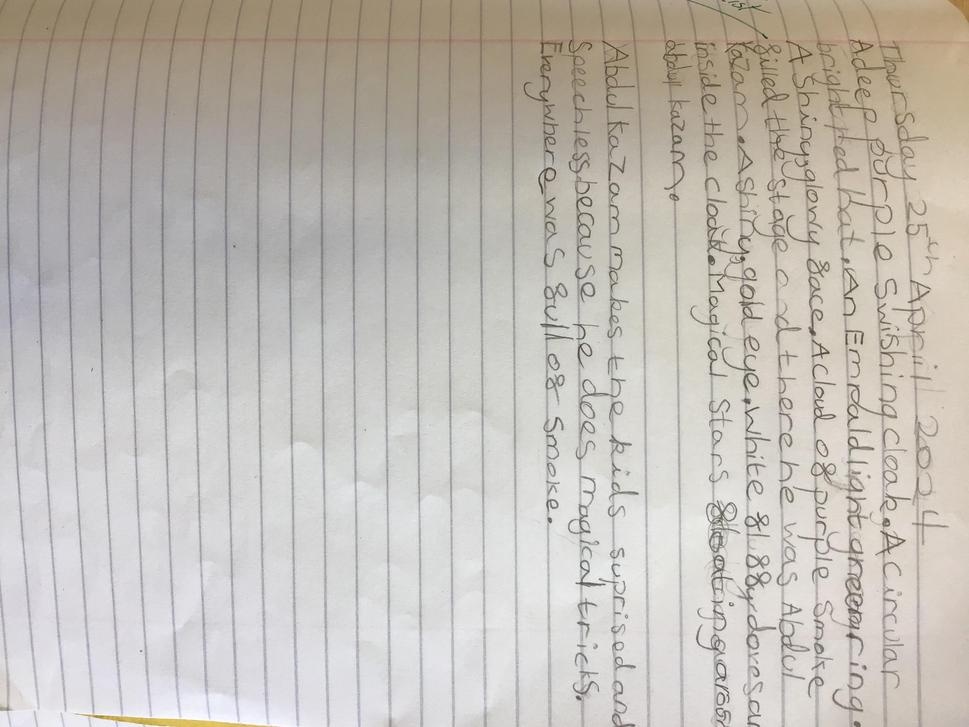 Thursday 25th April 2024
A deep purple swishing cloak. A circular
bright red hat. An Emrald light green ring.
A Shiny, glowy face. A cloud of purple smoke
filled the stage and there he was Abdul
kazam. A shiny, gold eye. White fluffy
inside the cloak. Magical stars floating
abdul kazam.
Abdul kazam makes the kids suprised and
Speechless because he does magical tricks.
Everywhere was full of smoke.